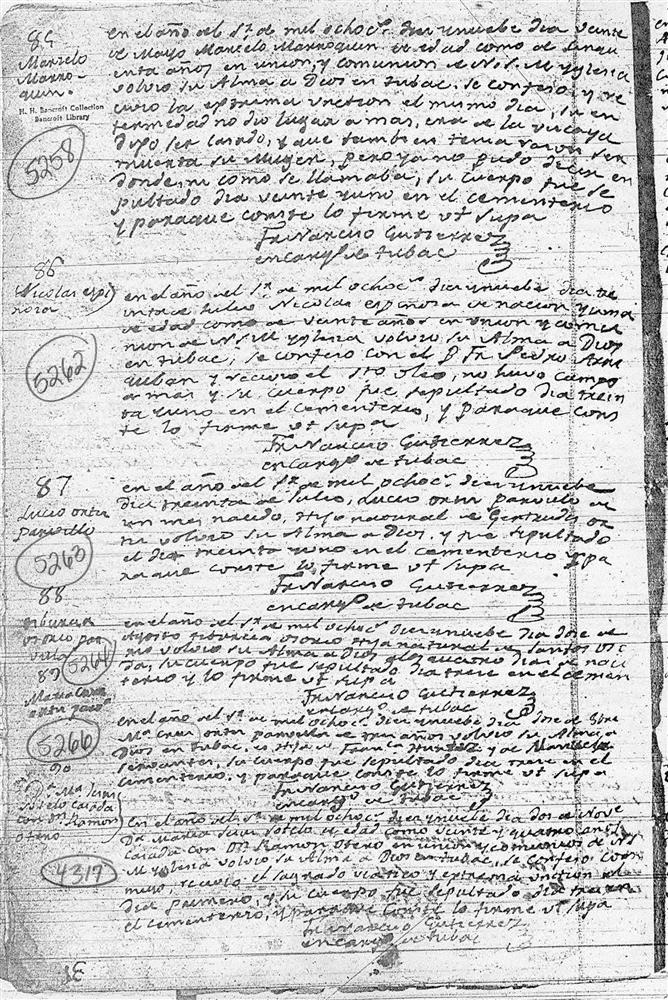 85
Marzelo
Marro-
quin
H. H. Bancroft Collection
Bancroft Library
5258
en el año del Sr. de mil ochoc.s diez y nuebe dia veinte
de Mayo Marzelo Marroquin de edad como de sinqu
enta años en union, y comunion de N.S. M. Yglesia
volvio su Alma a Dios en tubac. se confeso, y re
civio la extrema uncion el mismo dia, su en
fermedad no dio lugar a mas, era de la viscaya
dijo ser casado, y que tambien tenia
muerta su Muger, pero ya no pudo decir en
donde, ni como se llamaba, su cuerpo fue se
pultado dia veinte y uno en el cementerio
y paraque conste lo firme ut supa
Fr Narciso Gutierrez
encarg.do de tubac
86
Nicolas espi
nosa
5262
en el año del Sr. de mil ochoc.s diez y nuebe dia tre
inta de Julio Nicolas espinosa de nacion yuma
de edad como de veinte años en union y comu
nion de N.S.M Yglesia volvio su Alma a Dios
en tubac, se confeso con el P. Fr. Pedro Arri
quibar y recivio el sto oleo, no huvo campo
a mas y su cuerpo fue sepultado dia trein
ta y uno en el cementerio, y paraque cons
te lo firme ut supa
Fr Narciso Gutierrez
encarg.do de tubac
87
Lucio ortiz
parvulo
5263
en el año del Sr. de mil ochoc.s diez y nuebe
dia treinta de Julio, Lucio ortiz parvulo de
un mes nacido, Hijo natural de Gertrudis or
tiz volvio su Alma a Dios, y fue sepultado
el dia treinta y uno en el cementerio y pa
raque conste lo firme ut supa
Fr Narciso Gutierrez
encarg.do de tubac
88
tiburcia
osorio par
vula
en el año del Sr. de mil ochoc.s diez y nuebe dia dose de
Agosto tiburcia osorio Hija natural de Santos oso
rio volvio su Alma a Dios quatro dias de naci
da, su cuerpo fue sepultado dia trece en el cemen
terio y lo firme ut supa
Fr Narciso Gutierrez
encarg.do de tubac
89
Maria Cruz
ortiz parv.a
5266
en el año del Sr. de mil ochoc.s diez y nuebe dia dose de
M.a Cruz ortiz parvula de tres años volvio su Alma a
Dios en tubac, es Hija de Fran.co y de
servantes, su cuerpo fue sepultado dia trece en el
cementerio, y paraque conste lo firme ut supa
Fr Narciso Gutierrez
encarg.do de tubac
90
D.a M.a Jesus
Sotelo casada
con Dn Ramon
Otero
4317
en el año del Sr. de mil ochoc.s diez y nuebe dia dos de Nove
D.a Maria Jesus Sotelo de edad como veinte y quatro años
casada con Dn Ramon Otero en union, y comunion de N.S.
M Yglesia volvio su Alma a Dios en tubac, se confeso, comu
recivio el sagrado viatico y extrema uncion
dia primero, y su cuerpo fue sepultado dia tres en
el cementerio, y paraque conste lo firme ut supa
Fr Narciso Gutierrez
encarg.do de tubac